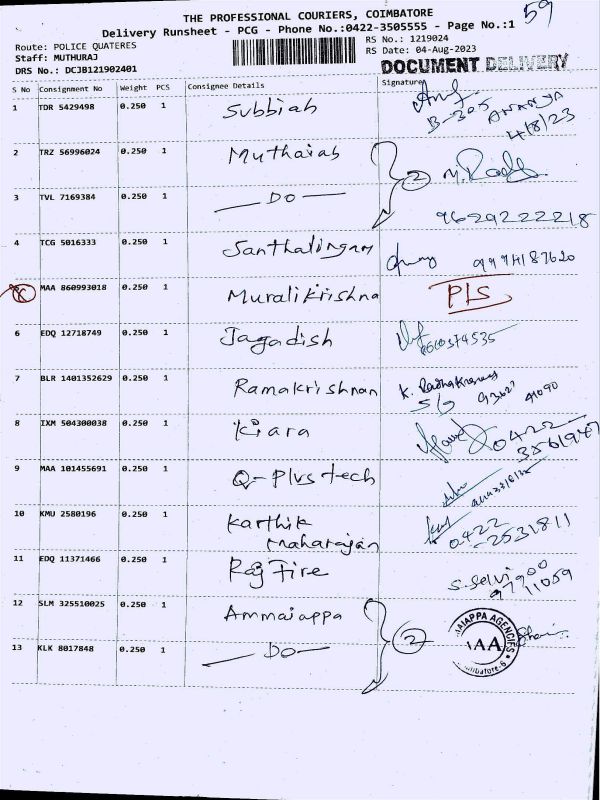 59
THE PROFESSIONAL COURIERS, COIMBATORE
Delivery Runsheet - PCG - Phone No.:0422-3505555 - Page No.:1
Route: POLICE QUATERES
RS No.: 1219024
Staff: MUTHURAJ
RS Date: 04-Aug-2023
DRS No.: DCJB121902401
DOCUMENT DELIVERY
S No Consignment No Weight PCS Consignee Details Signature
1 TDR 5429498 0.250 1 Subbiah
B-305 ANANYA
4/8/23
2 TRZ 56996024 0.250 1 Muthaiah 2
3 TVL 7169384 0.250 1 — DO — 9629222218
4 TCG 5016333 0.250 1 Santhalingam
K MAA 860993018 0.250 1 Muralikrishna P/S
6 EDQ 12718749 0.250 1 Jagadish
7 BLR 1401352629 0.250 1 Ramakrishnan K. Radhakrishnan
S/o 93627 41090
8 IXM 504300038 0.250 1 Kiara 0422
3561947
9 MAA 101455691 0.250 1 Q-Plus tech
10 KMU 2580196 0.250 1 Karthik
Maharajan
0422
-2531811
11 EDQ 11371466 0.250 1 Raj Fire S. Selvi
97900
11059
12 SLM 325510025 0.250 1 Ammaiappa
13 KLK 8017848 0.250 1 — DO — 2
MAIAPPA AGENCIES
AA
Coimbatore-6